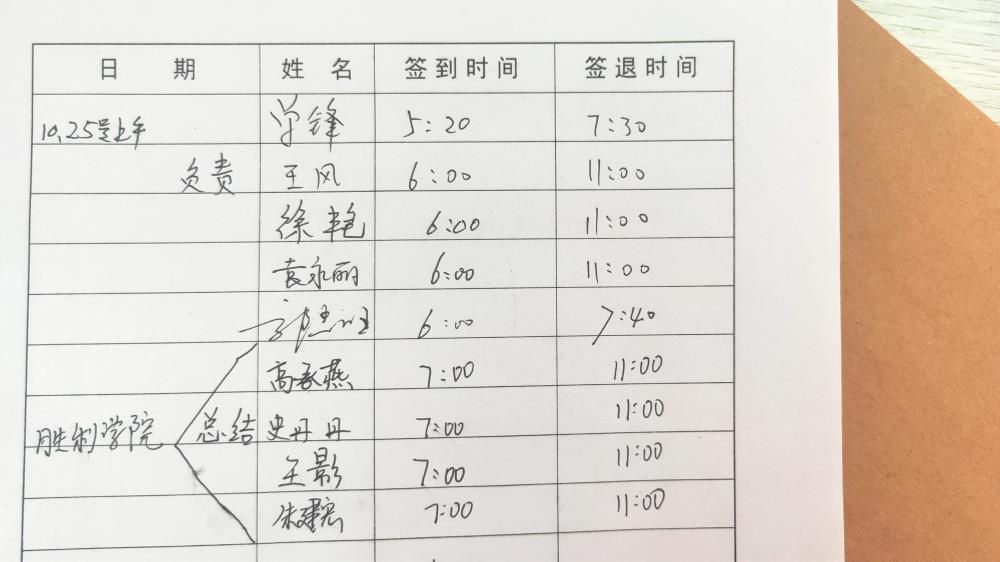 日 期 姓 名 签到时间 签退时间
10.25号上午 学锋 5:20 7:30
负责 王风 6:00 11:00
徐艳 6:00 11:00
袁永丽 6:00 11:00
6:00 7:40
高承燕 7:00 11:00
胜利学院 总结 史丹丹 7:00 11:00
王影 7:00 11:00
朱建宏 7:00 11:00